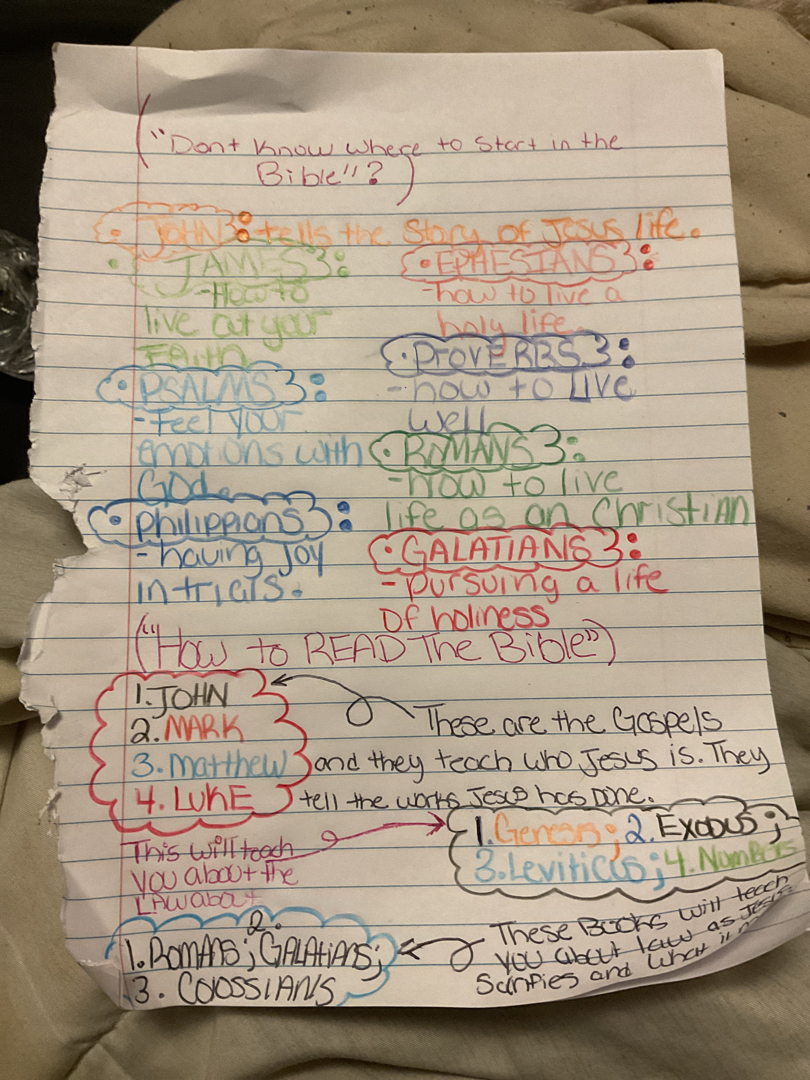 ("Dont Know where to Start in the
Bible"?)
• JOHN 3: tells the Story of Jesus life.
• JAMES 3:
-How to
live out your
FAITH
• EPHESIANS 3:
-how to live a
holy life
• PSALMS 3:
-feel your
emotions with
God.
• ProVERBS 3:
-how to LIVE
well
• ROMANS 3:
-How to live
life as an Christian
• Philippians 3:
-having Joy
in trials.
• GALATIANS 3:
-pursuing a life
Of holiness
("How to READ The Bible")
1. JOHN
2. MARK
3. Matthew
4. LUKE
These are the Gospels
and they teach who Jesus is. They
tell the works Jesus has Done.
This will teach
you about the
LAW about
1. Genesis; 2. Exodus;
3. Leviticus; 4. Numbers
1. Romans; 2. GALAtiANS;
3. COlOSSIANS
These Books will teach
you about law as Jesus
and what it